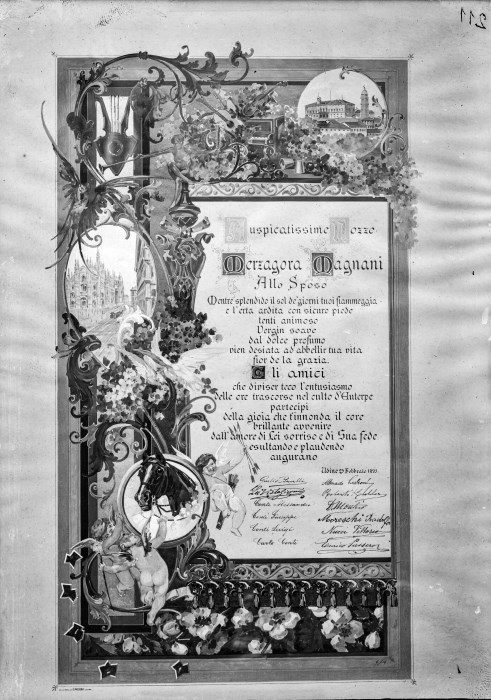 211
Auspicatissime Nozze
Merzagora Magnani
Allo Sposo
Mentre splendido il sol de' giorni tuoi fiammeggia
e l'erta ardita con sicuro piede
tenti animoso
Vergin soave
dal dolce profumo
vien desiata ad abbellir tua vita
fior de la grazia.
Gli amici
che diviser teco l'entusiasmo
delle ore trascorse nel culto d'Euterpe
partecipi
della gioia che t'innonda il core
brillante avvenire
dall'amore di Lei sorriso e di Sua fede
esultando e plaudendo
augurano
Udine Febbraio
Conti Alessandro
Conti Giuseppe
Conti Luigi
Carlo Conti
Moreschi
Vittorio